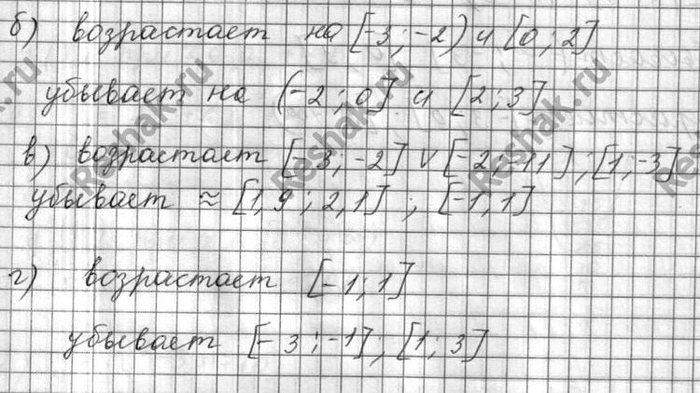 б) возрастает на [-3;-2) и [0;2]
убывает на (-2;0] и [2;3]
в) возрастает [-3;-2] v [-2;-1,1];[1;-3]
убывает ≈ [1,9;2,1]; [-1,1]
г) возрастает [-1;1]
убывает [-3;-1]; [1;3]
Reshak.ru